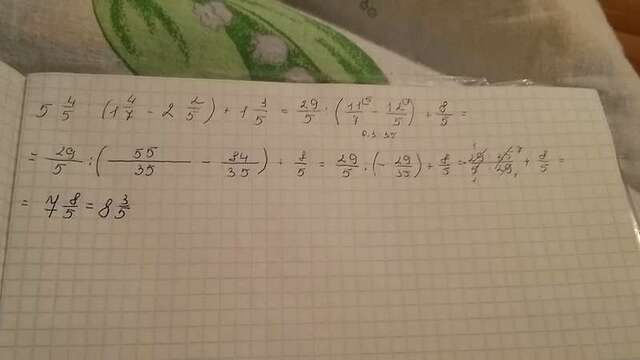 5 4/5 : (1 4/7 - 2 2/5) + 1 3/5 = 29/5 : (11/7 - 12/5) + 8/5 =
= 29/5 : (55/35 - 84/35) + 8/5 = 29/5 : (- 29/35) + 8/5 = 29/5 · 35/29 + 8/5 =
= 7 8/5 = 8 3/5